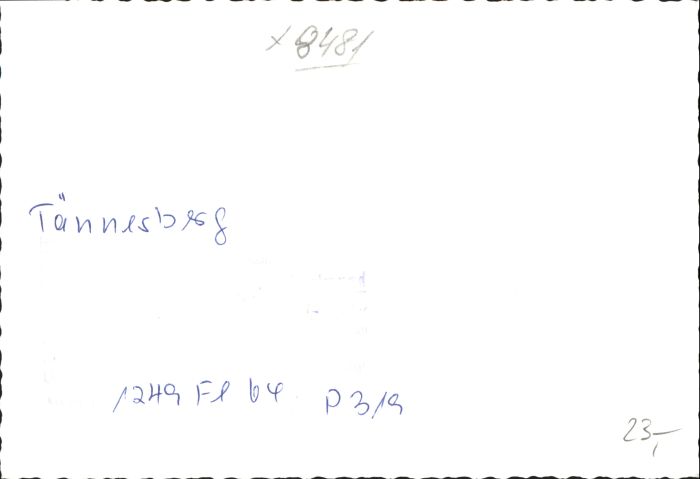 x 8481
Tännesberg
1249 Fl 64 P 319
23,-